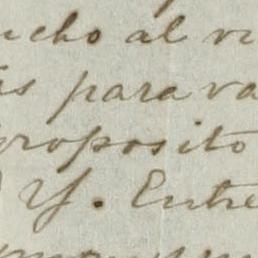 ucho al vi
as para va
proposito
Y. Entre